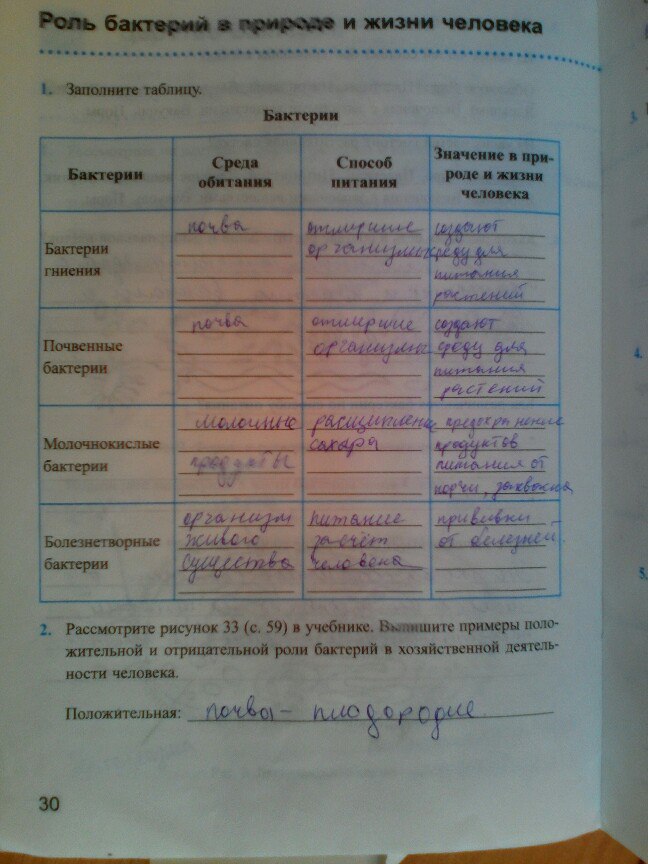 Роль бактерий в природе и жизни человека
1. Заполните таблицу.
Бактерии
Бактерии
Среда обитания
Способ питания
Значение в при-
роде и жизни
человека
Бактерии
гниения
почва
отмершие
организмы
создают
среду для
питания
растений
Почвенные
бактерии
почва
отмершие
организмы
создают
среду для
питания
растений
Молочнокислые
бактерии
молочные
продукты
расщипление
сахара
предохранение
продуктов
питания от
порчи, закваска
Болезнетворные
бактерии
организм
живого
существа
питание
засчёт
человека
прививки
от болезней
2. Рассмотрите рисунок 33 (с. 59) в учебнике. Выпишите примеры поло-
жительной и отрицательной роли бактерий в хозяйственной деятель-
ности человека.
Положительная: почва – плодородие
30
3.
4.
5.